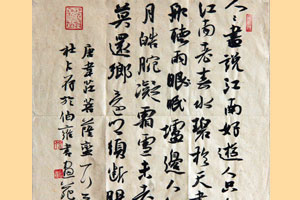 人〻盡說江南好遊人只
江南老春水碧於天畫
船聽雨眠壚邊人
月皓腕凝霜雪未老
莫還鄉須斷腸
唐韋莊菩薩蠻
書畫苑